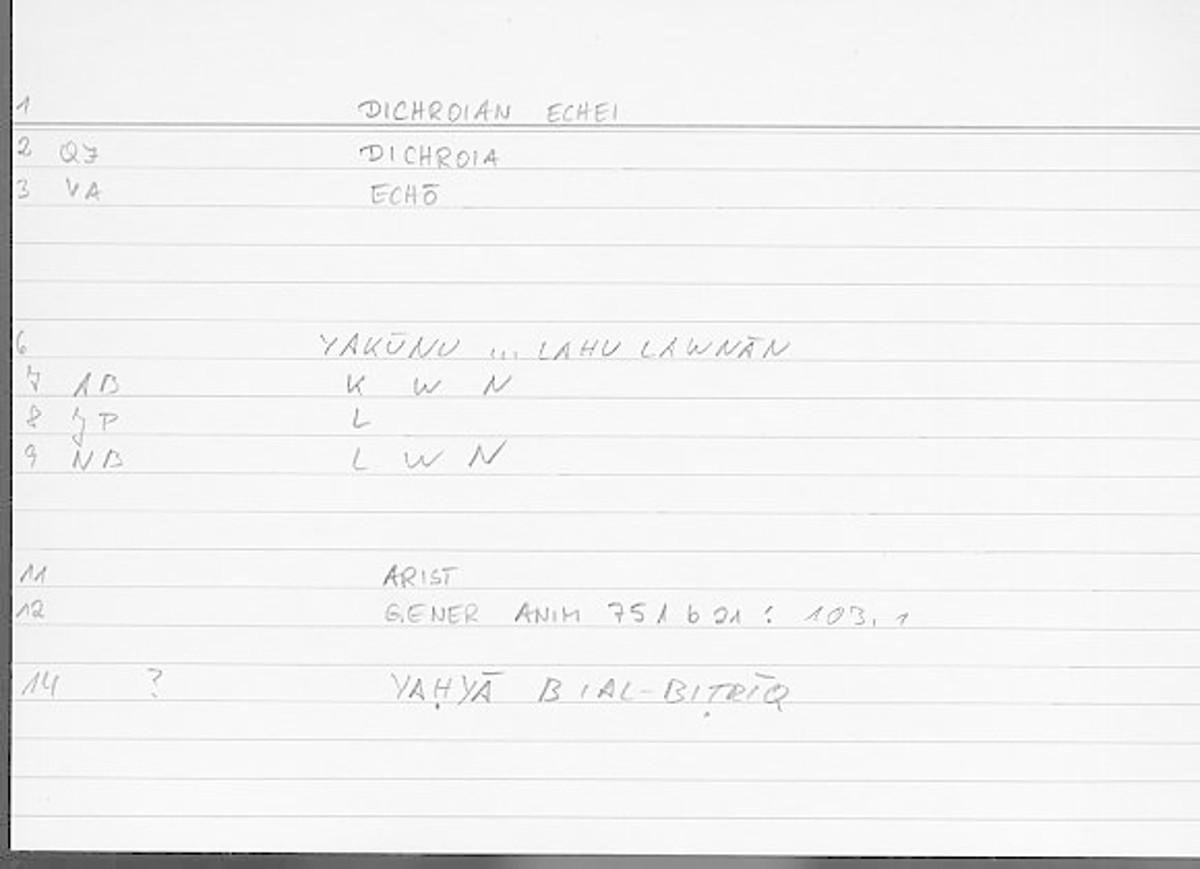 1 DICHROIAN ECHEI
2 QJ DICHROIA
3 VA ECHŌ
6 YAKŪNU ... LAHU LAWNĀN
7 AB K W N
8 JP L
9 NB L W N
11 ARIST
12 GENER ANIM 751 b 21 : 103, 1
14 ? YAḤYĀ B IAL-BIṬRĪQ